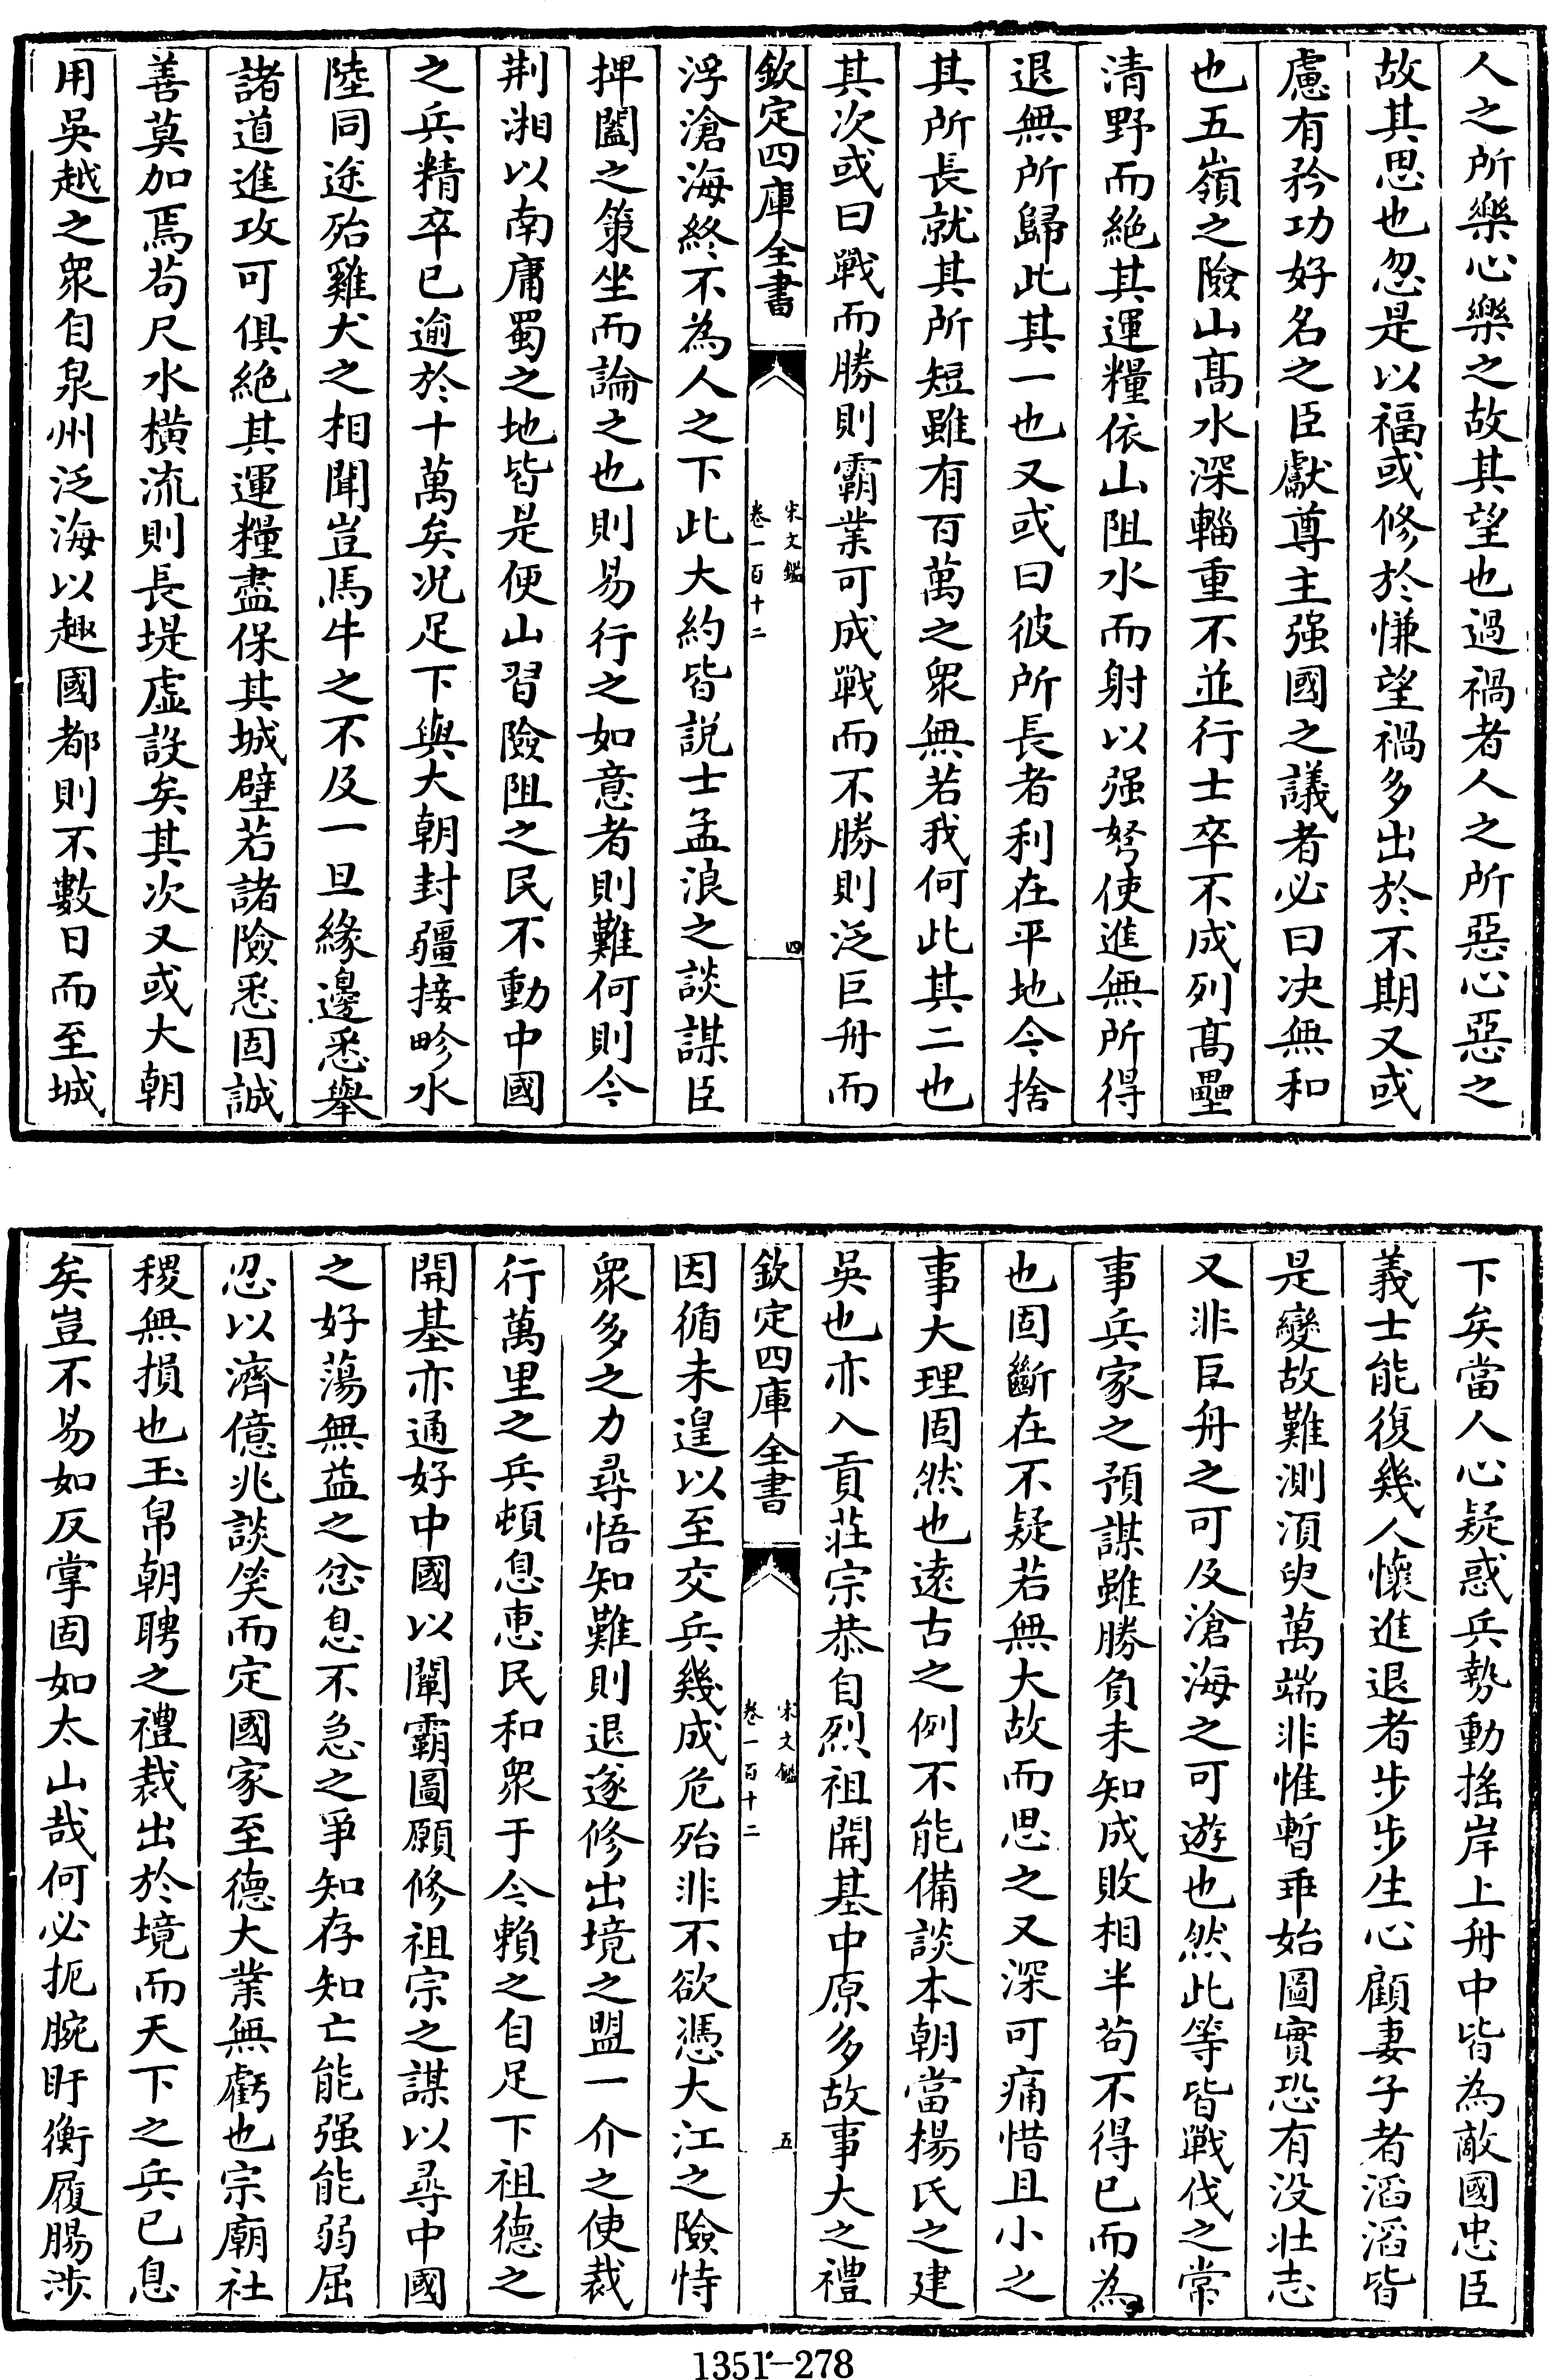 人之所樂心樂之故其望也過禍者人之所惡心惡之
故其思也忽是以福或修於慊望禍多出於不期又或
慮有矜功好名之臣獻尊主强國之議者必曰决無和
也五嶺之險山髙水深輜重不並行士卒不成列髙壘
清野而絶其運糧依山阻水而射以强弩使進無所得
退無所歸此其一也又或曰彼所長者利在平地今捨
其所長就其所短雖有百萬之衆無若我何此其二也
其次或曰戰而勝則霸業可成戰而不勝則泛巨舟而
欽定四庫全書
宋文鑑
卷一百十二
四
浮滄海終不為人之下此大約皆説士孟浪之談謀臣
捭闔之策坐而論之也則易行之如意者則難何則今
荆湘以南庸蜀之地皆是便山習險阻之民不動中國
之兵精卒已逾於十萬矣况足下與大朝封疆接畛水
陸同途殆雞犬之相聞豈馬牛之不及一旦緣邊悉舉
諸道進攻可俱絶其運糧盡保其城壁若諸險悉固誠
善莫加焉苟尺水横流則長堤虛設矣其次又或大朝
用吳越之衆自泉州泛海以趣國都則不數日而至城
下矣當人心疑惑兵勢動搖岸上舟中皆為敵國忠臣
義士能復幾人懷進退者步步生心顧妻子者滔滔皆
是變故難測湏臾萬端非惟暫乖始圖實恐有没壯志
又非巨舟之可及滄海之可遊也然此等皆戰伐之常
事兵家之預謀雖勝負未知成敗相半苟不得已而為
也固斷在不疑若無大故而思之又深可痛惜且小之
事大理固然也逺古之例不能備談本朝當楊氏之建
吳也亦入貢莊宗恭自烈祖開基中原多故事大之禮
欽定四庫全書
宋文鑑
卷一百十二
五
因循未遑以至交兵幾成危殆非不欲憑大江之險恃
衆多之力尋悟知難則退遂修出境之盟一介之使裁
行萬里之兵頓息惠民和衆于今賴之自足下祖德之
開基亦通好中國以闡霸圖願修祖宗之謀以尋中國
之好蕩無益之忿息不急之爭知存知亡能强能弱屈
忍以濟億兆談笑而定國家至德大業無虧也宗廟社
稷無損也玉帛朝聘之禮裁出於境而天下之兵已息
矣豈不易如反掌固如太山哉何必扼腕盱衡履腸涉
1351-278